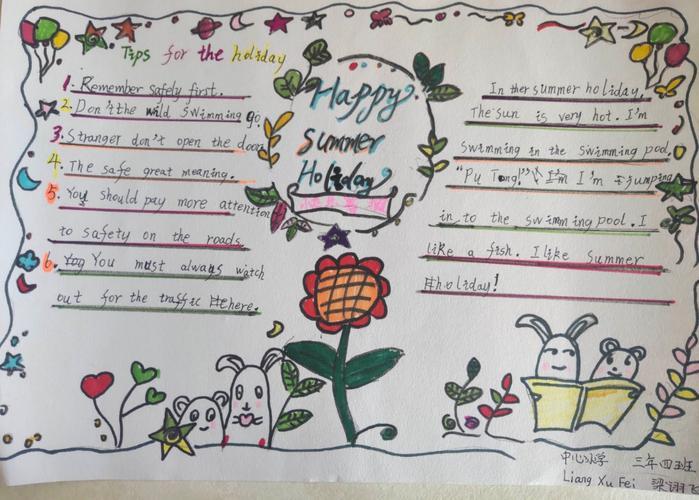 Tips for the holiday
1. Remember safely first.
2. Don'tthe wild swimming go
3. Stranger don't open the door
4. The safe great meaning.
5. You should pay more attention
to safety on the roads.
6. You must always watch
out for the traffic there.
Happy
Summer
Holiday
In ther summer holiday,
The sun is very hot. I'm
swimming in the swimming pool.
"Pu Tong!" I'm I'm jumping
in to the swimming pool. I
like a fish. I like summer
holiday!
中心小学 三年四班
Liang Xu Fei 梁诩飞